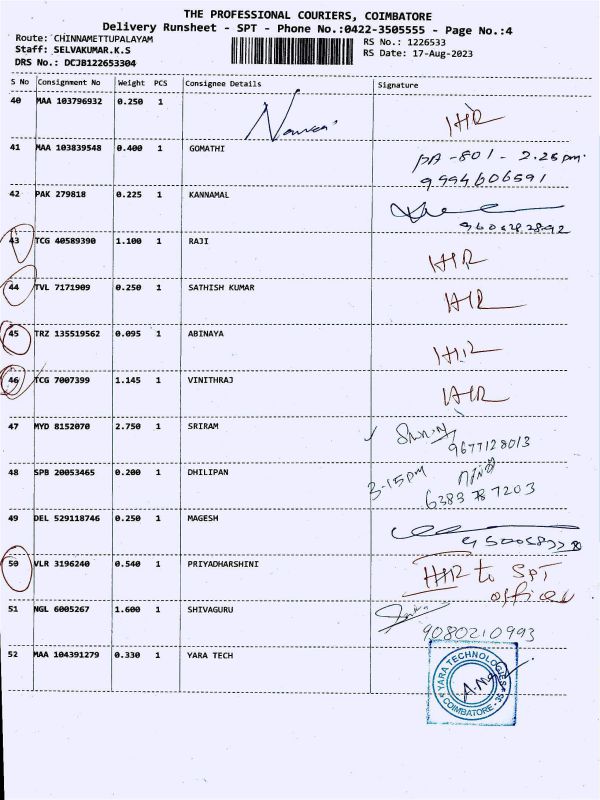 THE PROFESSIONAL COURIERS, COIMBATORE
Delivery Runsheet - SPT - Phone No.:0422-3505555 - Page No.:4
Route: CHINNAMETTUPALAYAM
Staff: SELVAKUMAR.K.S
DRS No.: DCJB122653304
RS No.: 1226533
RS Date: 17-Aug-2023
S No Consignment No Weight PCS Consignee Details Signature
40 MAA 103796932 0.250 1
41 MAA 103839548 0.400 1 GOMATHI PA-801 - 2.26 pm.
9994606591
42 PAK 279818 0.225 1 KANNAMAL
43 TCG 40589390 1.100 1 RAJI
44 TVL 7171909 0.250 1 SATHISH KUMAR
45 TRZ 135519562 0.095 1 ABINAYA
46 TCG 7007399 1.145 1 VINITHRAJ
47 MYD 8152070 2.750 1 SRIRAM
9677128013
48 SPB 20053465 0.200 1 DHILIPAN 3-15pm
6383 787203
49 DEL 529118746 0.250 1 MAGESH
50 VLR 3196240 0.540 1 PRIYADHARSHINI to SPT
office
51 NGL 6005267 1.600 1 SHIVAGURU
9080210993
52 MAA 104391279 0.330 1 YARA TECH
YARA TECHNOLOGIES
COIMBATORE - 35